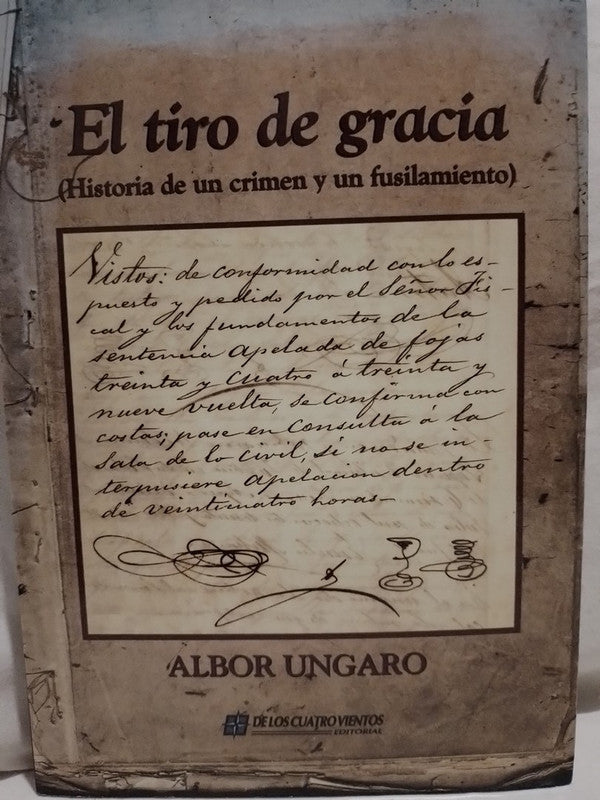 El tiro de gracia
(Historia de un crimen y un fusilamiento)
Vistos: de conformidad con lo es-
puesto y pedido por el Señor Fis-
cal y los fundamentos de la
sentencia apelada de fojas
treinta y cuatro á treinta y
nueve vuelta, se confirma con
costas; pase en consulta á la
Sala de lo Civil, si no se in-
terpusiere apelacion dentro
de veinticuatro horas-
ALBOR UNGARO
DE LOS CUATRO VIENTOS
EDITORIAL